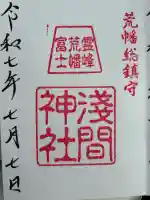 荒幡総鎮守
霊峰
荒幡
富士
淺間
神社
令和七年七月七日